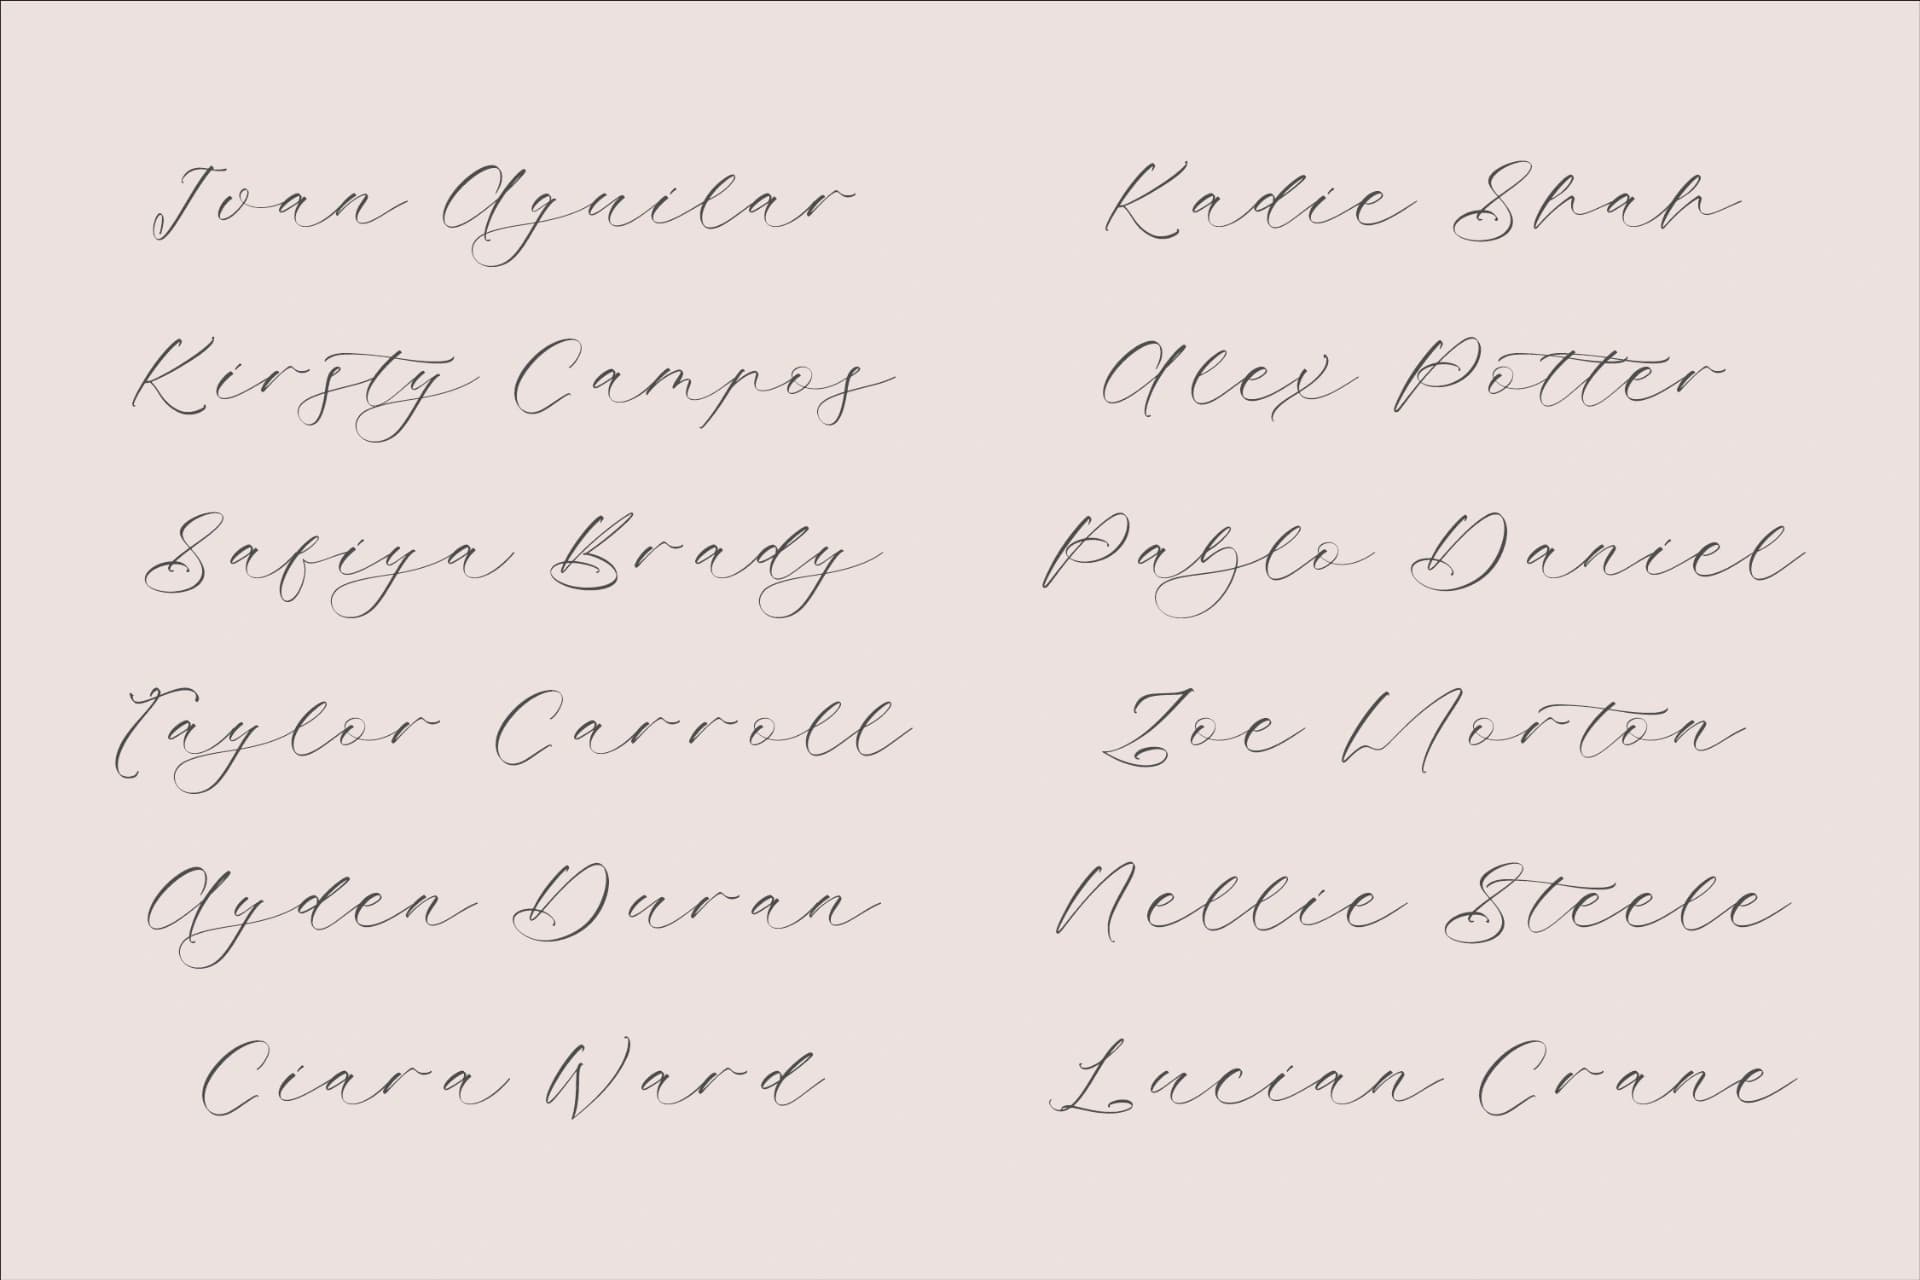 Ivan Aguilar
Kadie Shah
Kirsty Campos
Alex Potter
Safiya Brady
Pablo Daniel
Taylor Carroll
Zoe Morton
Ayden Duran
Nellie Steele
Ciara Ward
Lucian Crane